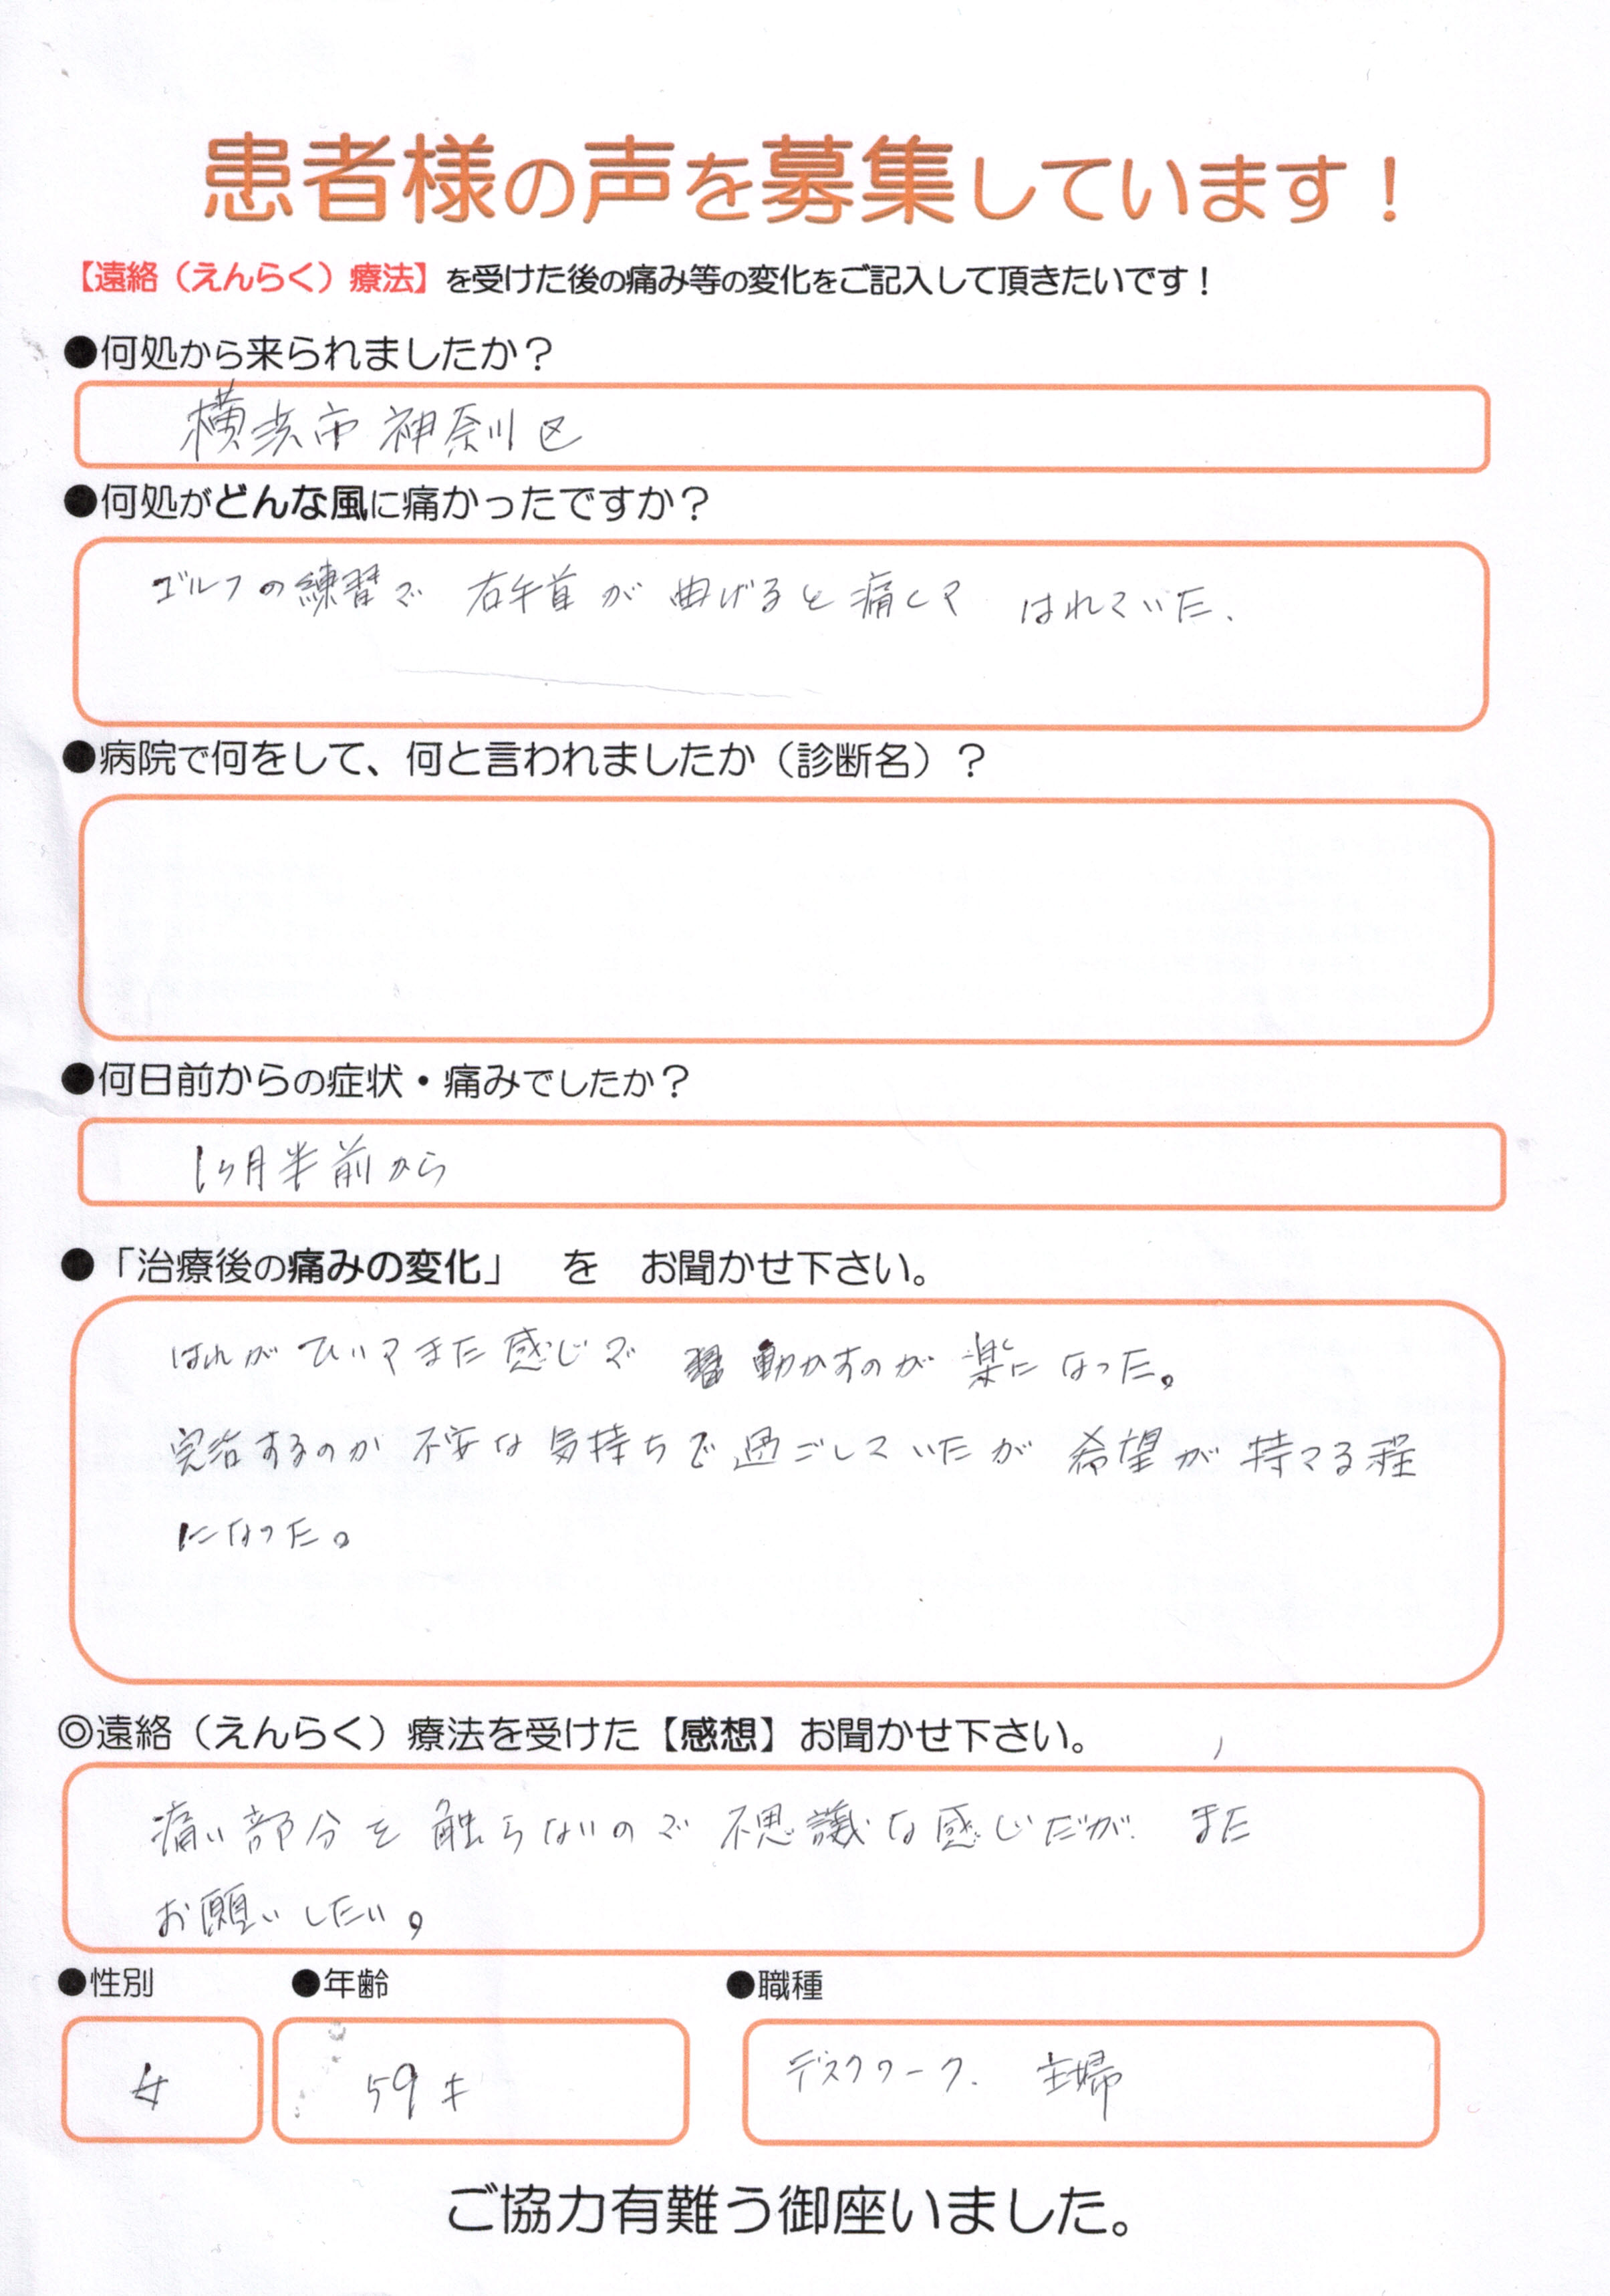 患者様の声を募集しています！
【遠絡（えんらく）療法】を受けた後の痛み等の変化をご記入して頂きたいです！
●何処から来られましたか？
横浜市神奈川区
●何処がどんな風に痛かったですか？
ゴルフの練習で 右手首が 曲げると痛くて はれていた、
●病院で何をして、何と言われましたか（診断名）？
●何日前からの症状・痛みでしたか？
1ヶ月半前から
●「治療後の痛みの変化」 を お聞かせ下さい。
はれが ひいてきた感じで 動かすのが 楽に なった。
完治するのか 不安な気持ちで過ごしていたが 希望が持てる程
になった。
◎遠絡（えんらく）療法を受けた【感想】お聞かせ下さい。
痛い部分を 触らないので 不思議な感じだが また
お願いしたい。
●性別 ●年齢 ●職種
女 59才 デスクワーク. 主婦
ご協力有難う御座いました。